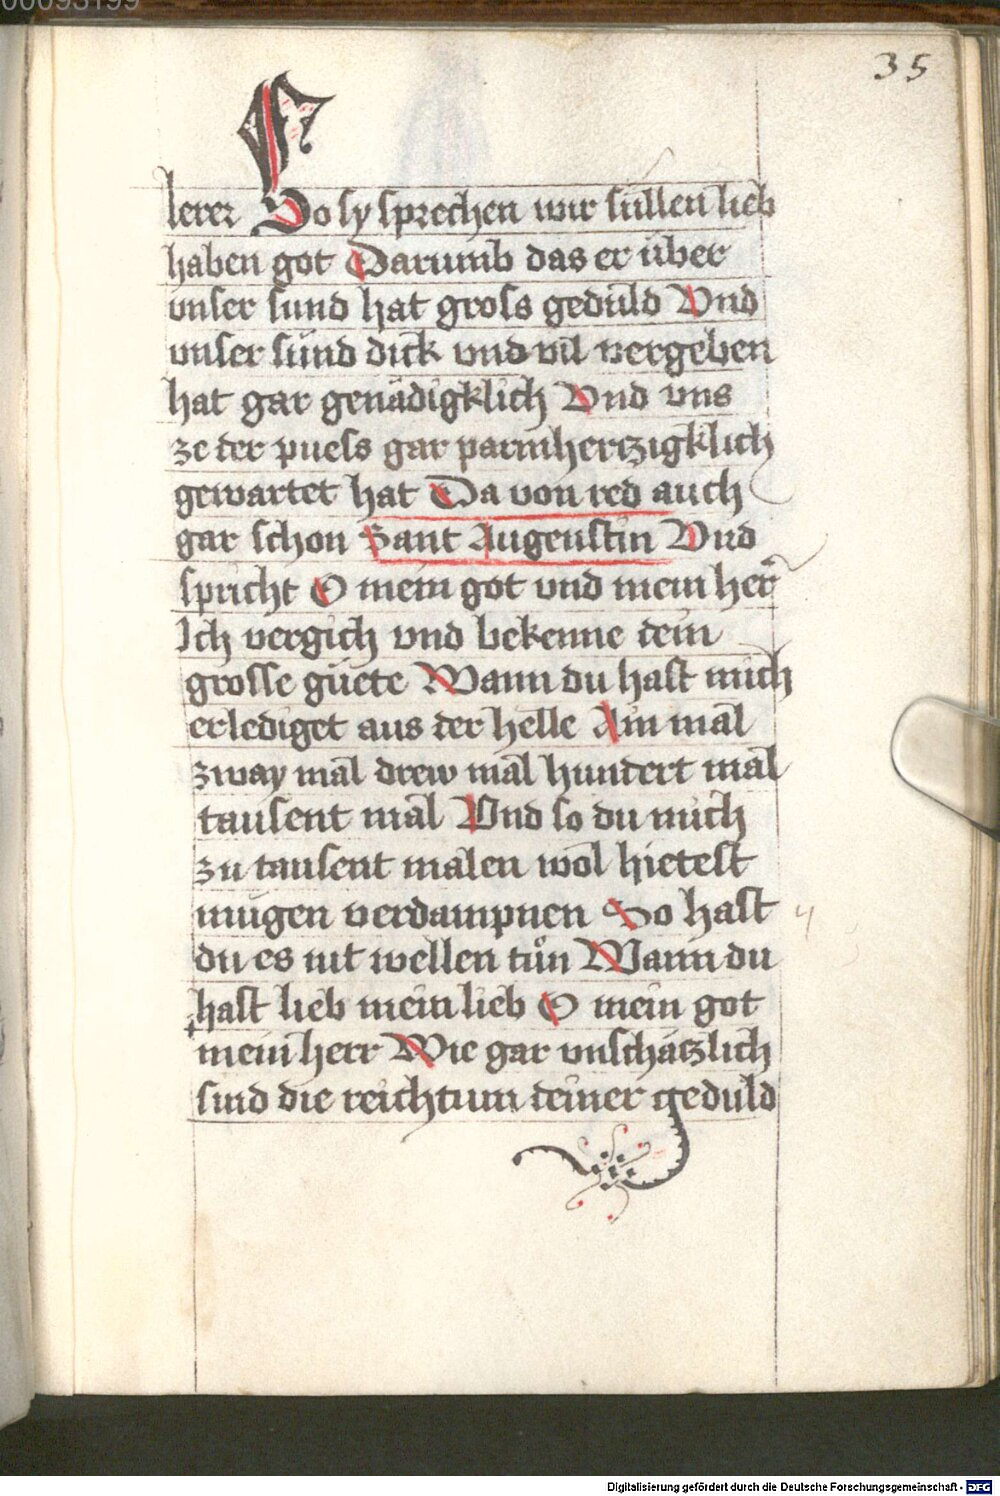 00093199
35
lerer So sy sprechen wir süllen lieb
haben got Darumb das er über
vnser sund hat gross geduld Vnd
vnser sünd dick vnd vil vergeben
hat gar genädigklich Vnd vns
ze der puess gar parmhertzigklich
gewartet hat Da von red auch
gar schon Sant Augenstin Vnd
spricht O mein got vnd mein herr
Ich vergich vnd bekenne dein
grosse güete Wann du hast mich
erlediget aus der helle Ain mal
zway mal drew mal hundert mal
tausent mal Vnd so du mich
zu tausent malen wol hietest
mugen verdampnen So hast
du es nit wellen tůn Wann du
hast lieb mein lieb O mein got
mein herr Wie gar vnschätzlich
sind die reichtum deiner geduld
Digitalisierung gefördert durch die Deutsche Forschungsgemeinschaft - DFG